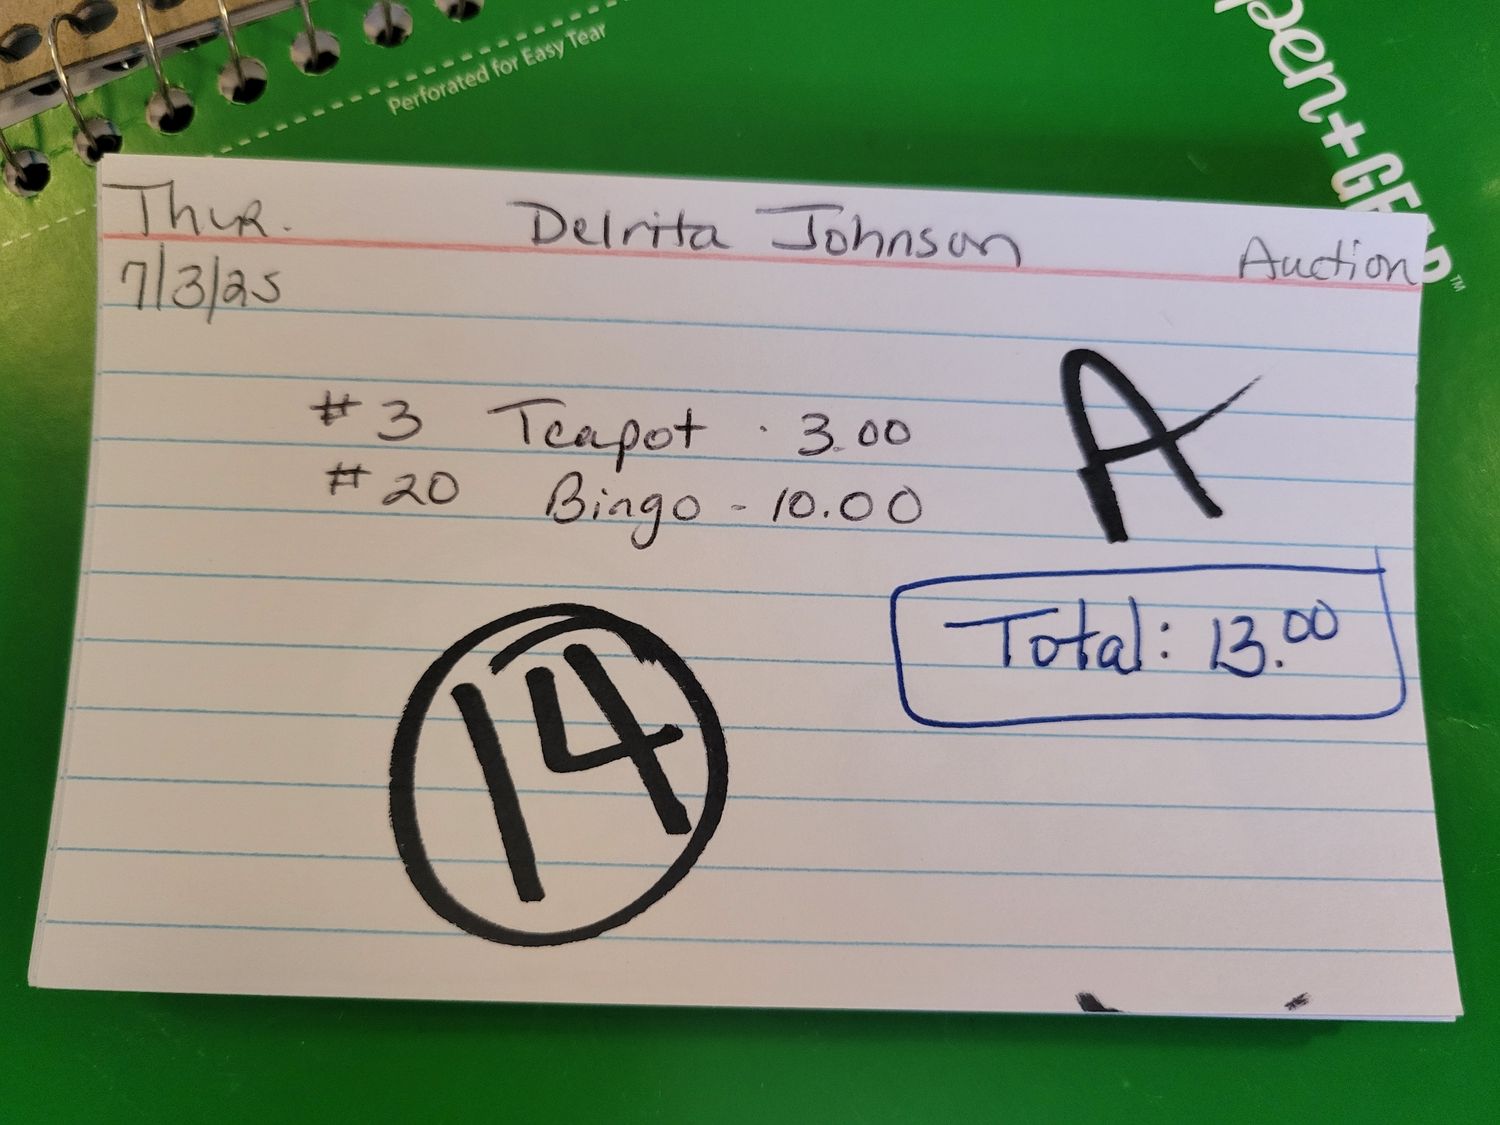 Perforated for Easy Tear
pen+GEAR™
Thur. Delrita Johnson Auction
7/3/25
#3 Teapot · 3.00
#20 Bingo - 10.00
A
Total: 13.00
14